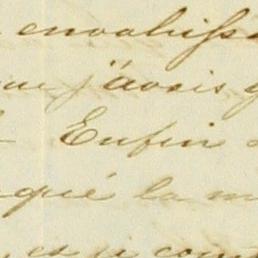 envahiss
j'avais
Enfin
qué la m
et je com